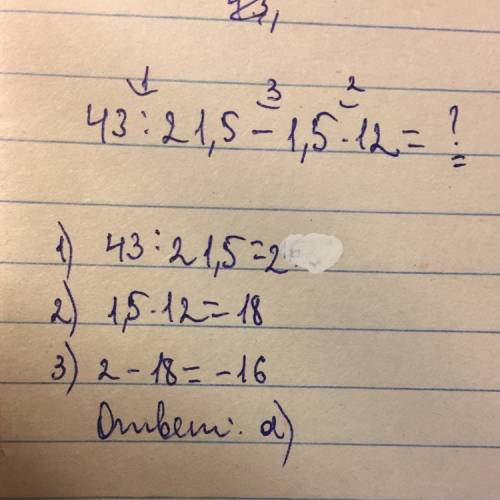 43,
1 3 2
43 : 21,5 - 1,5 · 12 = ?
1) 43 : 21,5 = 2
2) 1,5 · 12 = 18
3) 2 - 18 = -16
Ответ: а)